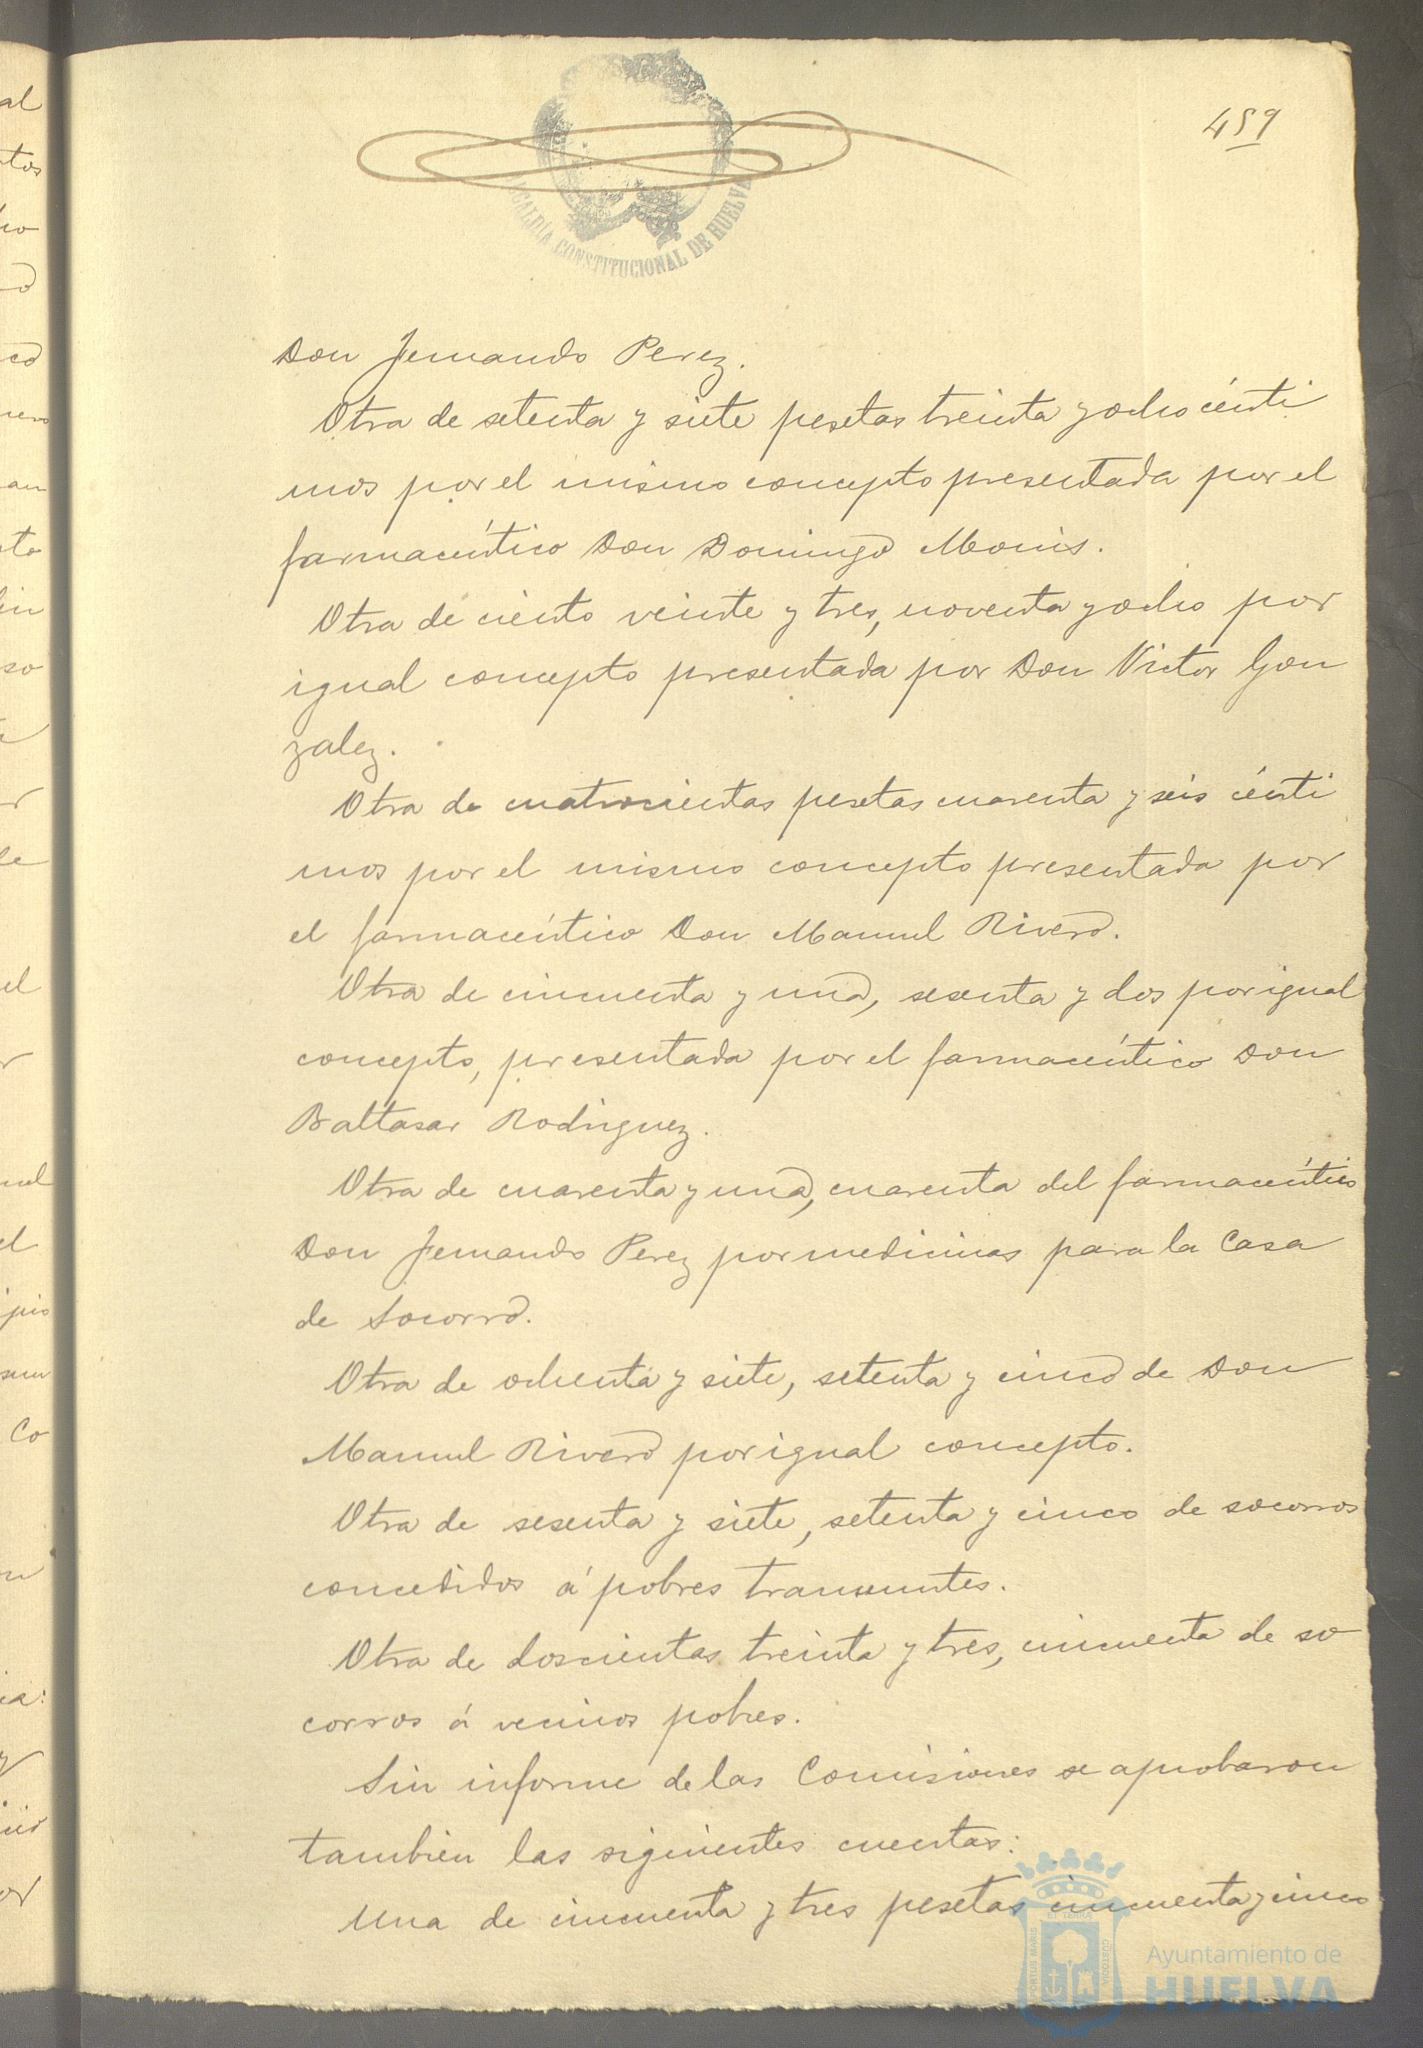 459
ALCALDÍA CONSTITUCIONAL DE HUELVA
Don Fernando Perez.
Otra de setenta y siete pesetas treinta y ocho cénti
mos por el mismo concepto presentada por el
farmacéutico Don Domingo Monis.
Otra de ciento veinte y tres, noventa y ocho por
igual concepto presentada por Don Victor Gon
zalez.
Otra de cuatrocientas pesetas cuarenta y seis cénti
mos por el mismo concepto presentada por
el farmacéutico Don Manuel Rivero.
Otra de cincuenta y una, sesenta y dos por igual
concepto, presentada por el farmacéutico Don
Baltasar Rodriguez.
Otra de cuarenta y una, cuarenta del farmacéutico
Don Fernando Perez por medicinas para la Casa
de Socorro.
Otra de ochenta y siete, setenta y cinco de Don
Manuel Rivero por igual concepto.
Otra de sesenta y siete, setenta y cinco de socorros
concedidos á pobres transeuntes.
Otra de doscientas treinta y tres, cincuenta de so
corros á vecinos pobres.
Sin informe de las Comisiones se aprobaron
tambien las siguientes cuentas:
Una de cincuenta y tres pesetas cincuenta y cinco
Ayuntamiento de
HUELVA